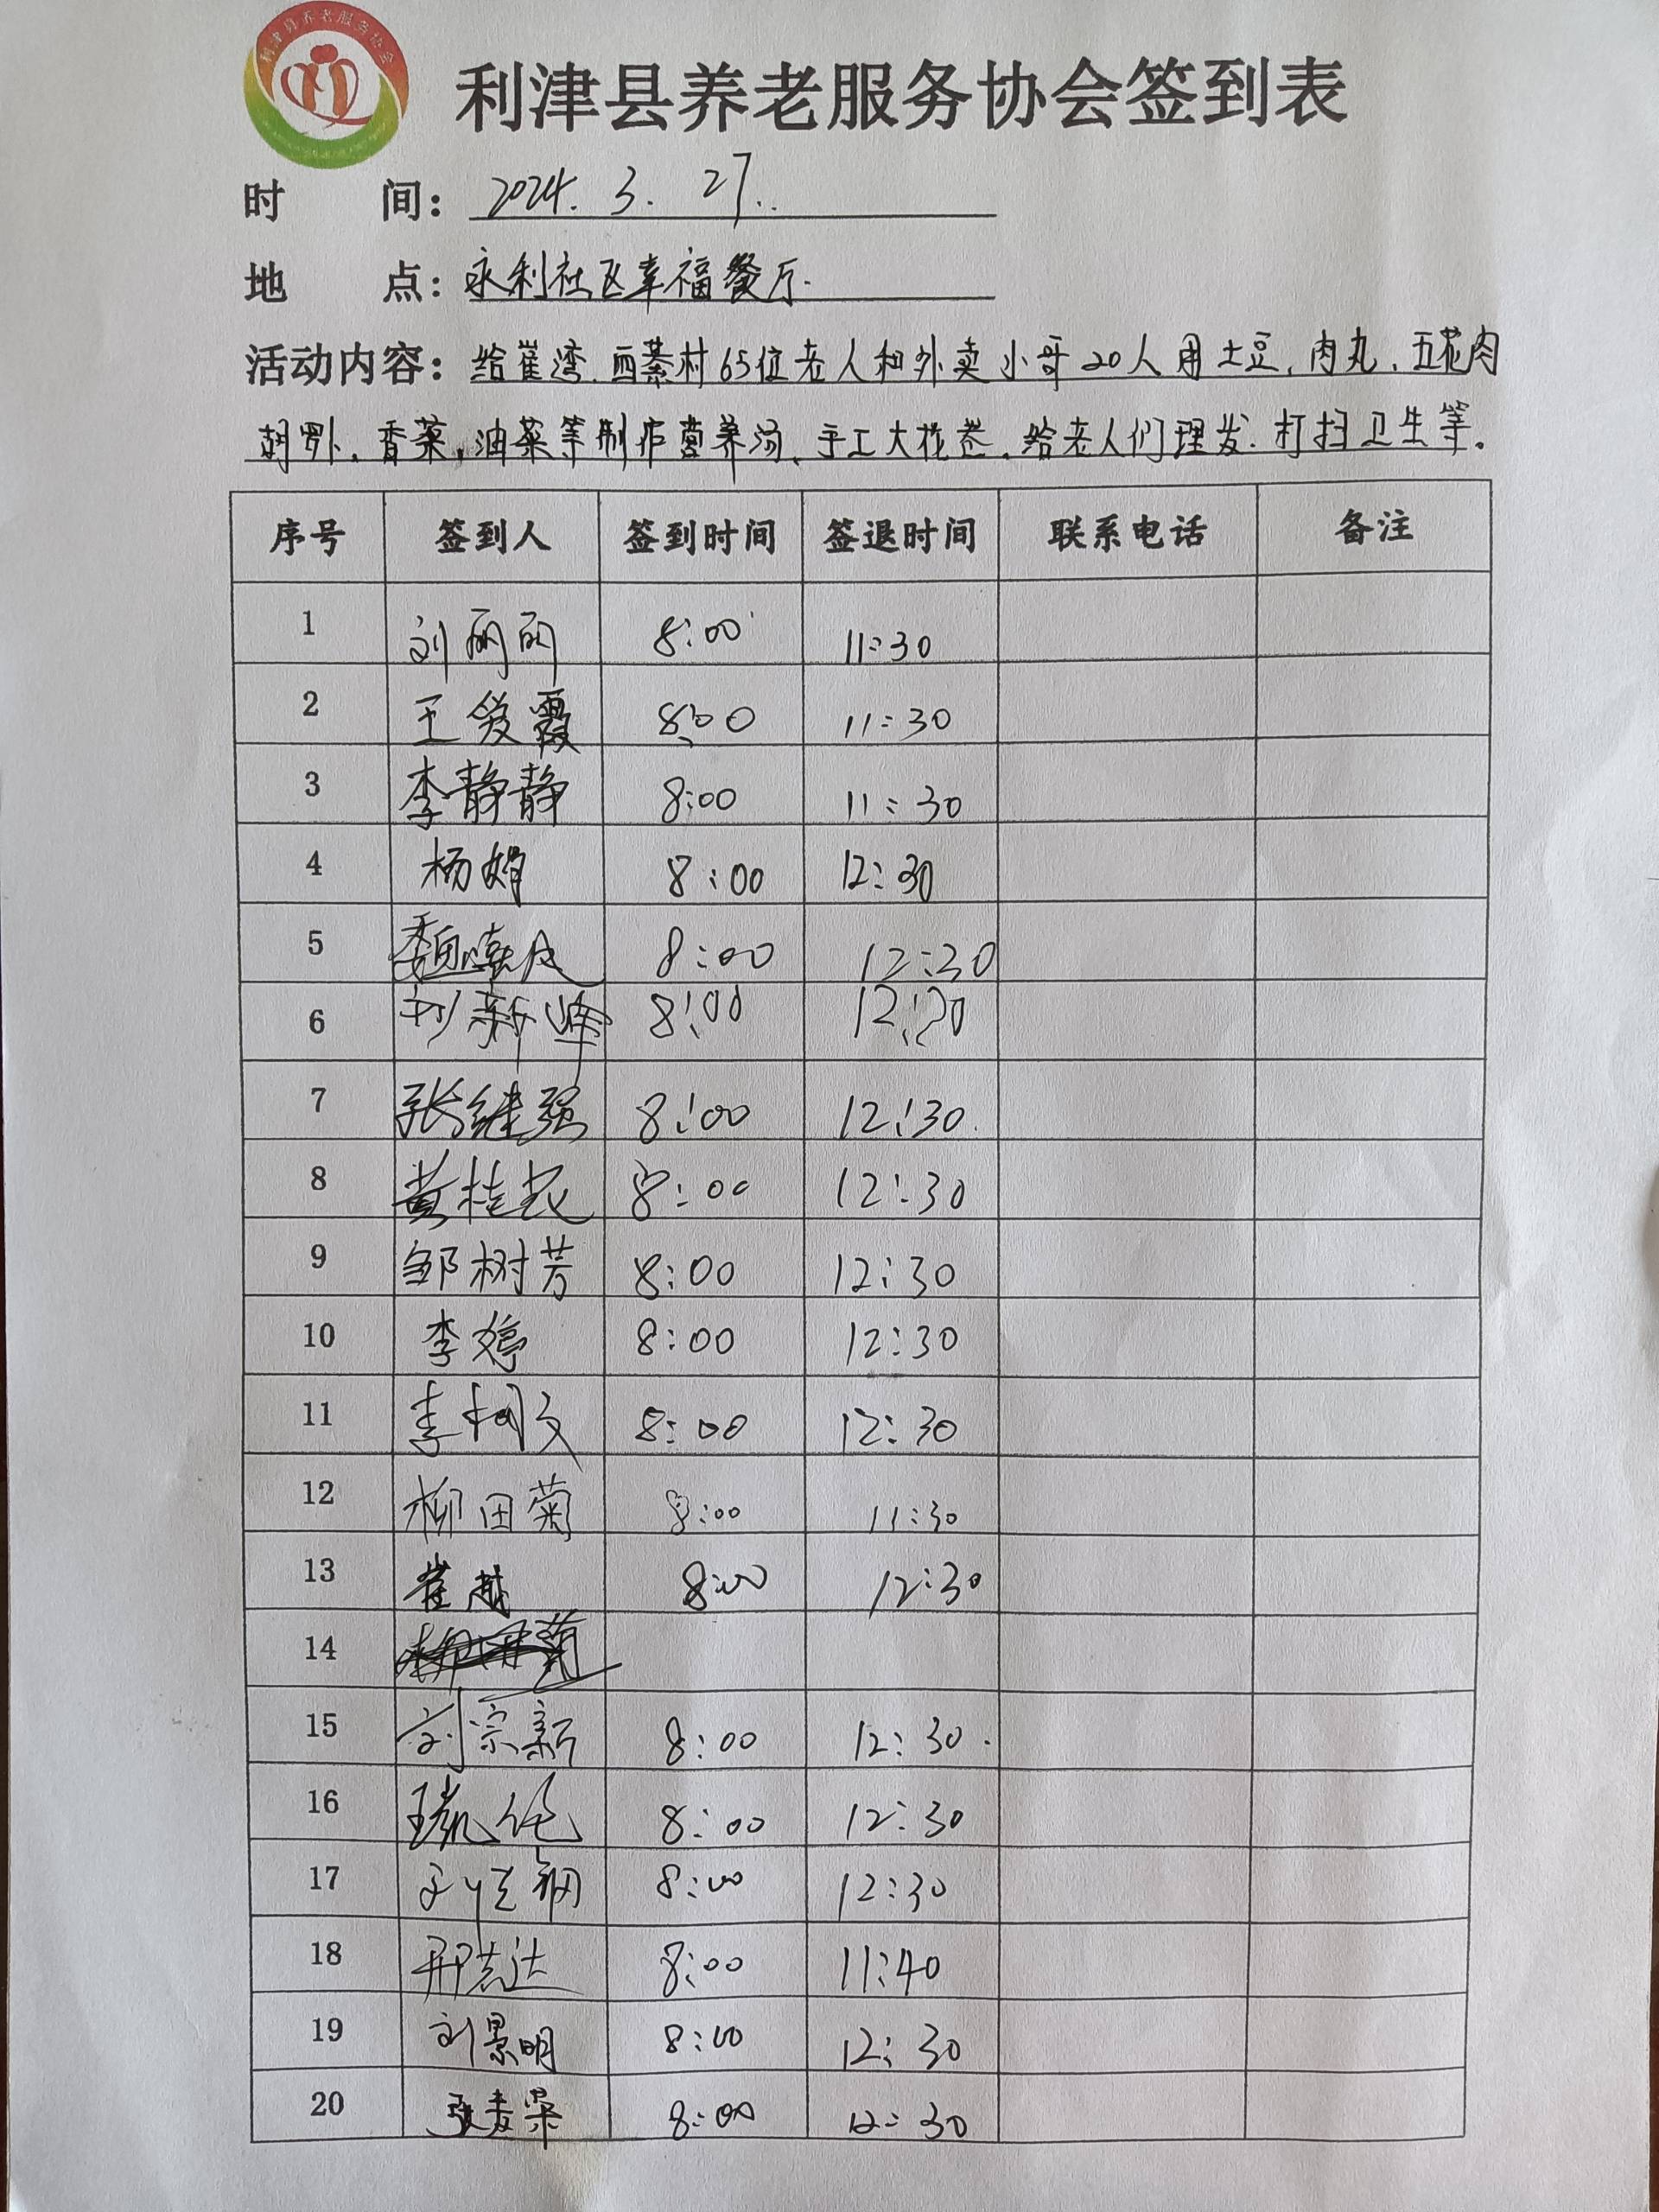 利津县养老服务协会
利津县养老服务协会签到表
时 间: 2024.3.27..
地 点: 永利社区幸福餐厅.
活动内容: 给崔湾.西綦村65位老人和外卖小哥20人用土豆,肉丸,五花肉
胡罗卜,香菜,油菜等制作营养汤、手工大花卷,给老人们理发.打扫卫生等。
序号 签到人 签到时间 签退时间 联系电话 备注
1 刘丽丽 8:00 11:30
2 王爱霞 8:00 11:30
3 李静静 8:00 11:30
4 杨娟 8:00 12:30
5 魏 8:00 12:30
6 刘新峰 8:00 12:30
7 张继强 8:00 12:30.
8 黄桂花 8:00 12:30
9 邹树芳 8:00 12:30
10 李婷 8:00 12:30
11 李 文 8:00 12:30
12 柳田菊 8:00 11:30
13 崔越 8:00 12:30
14
15 刘宗新 8:00 12:30.
16 8:00 12:30
17 8:00 12:30
18 邢志达 8:00 11:40
19 刘景明 8:00 12:30
20 张 8:00 12:30